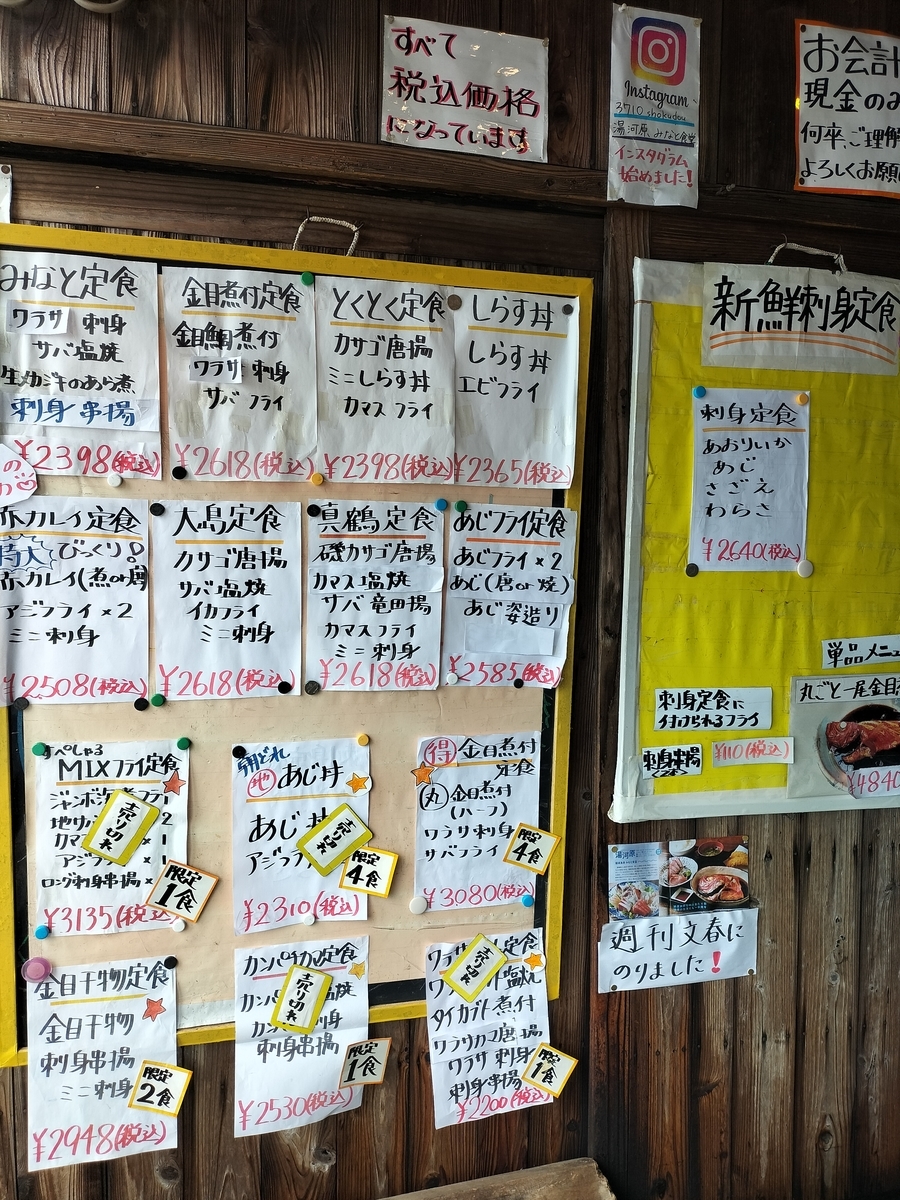 すべて
税込価格
になっています
Instagram
3710 shokudou
湯河原 みなと食堂
インスタグラム
始めました!
お会計
現金のみ
何卒、ご理解
よろしくお願
みなと定食
ワラサ 刺身
サバ塩焼
生メカジキのあら煮
刺身串揚
¥2398(税込)
金目煮付定食
金目鯛煮付
ワラサ 刺身
サバフライ
¥2618(税込)
とくとく定食
カサゴ唐揚
ミニしらす丼
カマスフライ
¥2398(税込)
しらす丼
しらす丼
エビフライ
¥2365(税込)
赤カレイ定食
びっくり!
赤カレイ(煮or唐
アジフライ×2
ミニ刺身
¥2508(税込)
大島定食
カサゴ唐揚
サバ塩焼
イカフライ
ミニ刺身
¥2618(税込)
真鶴定食
磯カサゴ唐揚
カマス塩焼
サバ竜田揚
カマスフライ
ミニ刺身
¥2618(税込)
あじフライ定食
あじフライ×2
あじ(唐or焼)
あじ姿造り
¥2585(税込)
すぺしゃる
MIXフライ定食
ジャンボ
地サ
カマ
アジフ
ロング刺身串揚×
売り切れ
限定
1食
¥3135(税込)
朝どれ
地あじ丼
あじ丼
アジフラ
売り切れ
限定
4食
¥2310(税込)
得金目煮付
定食
丸金目煮付
(ハーフ)
ワラサ刺身
サバフライ
限定
4食
¥3080(税込)
金目干物定食
金目干物
刺身串揚
ミニ刺身
限定
2食
¥2948(税込)
カンパチカマ定食
カンパ 塩焼
カン 刺身
刺身串揚
売り切れ
限定
1食
¥2530(税込)
ワラサ 定食
塩焼
タイカブト煮付
ワラサカマ唐揚
ワラサ 刺身
刺身串揚
売り切れ
限定
1食
¥2200(税込)
新鮮刺身定食
刺身定食
あおりいか
あじ
さざえ
わらさ
¥2640(税込)
単品メニュ
刺身定食に
付けられるフライ
刺身串揚
¥110(税込)
丸ごと一尾金目
¥4840
週刊文春に
のりました!